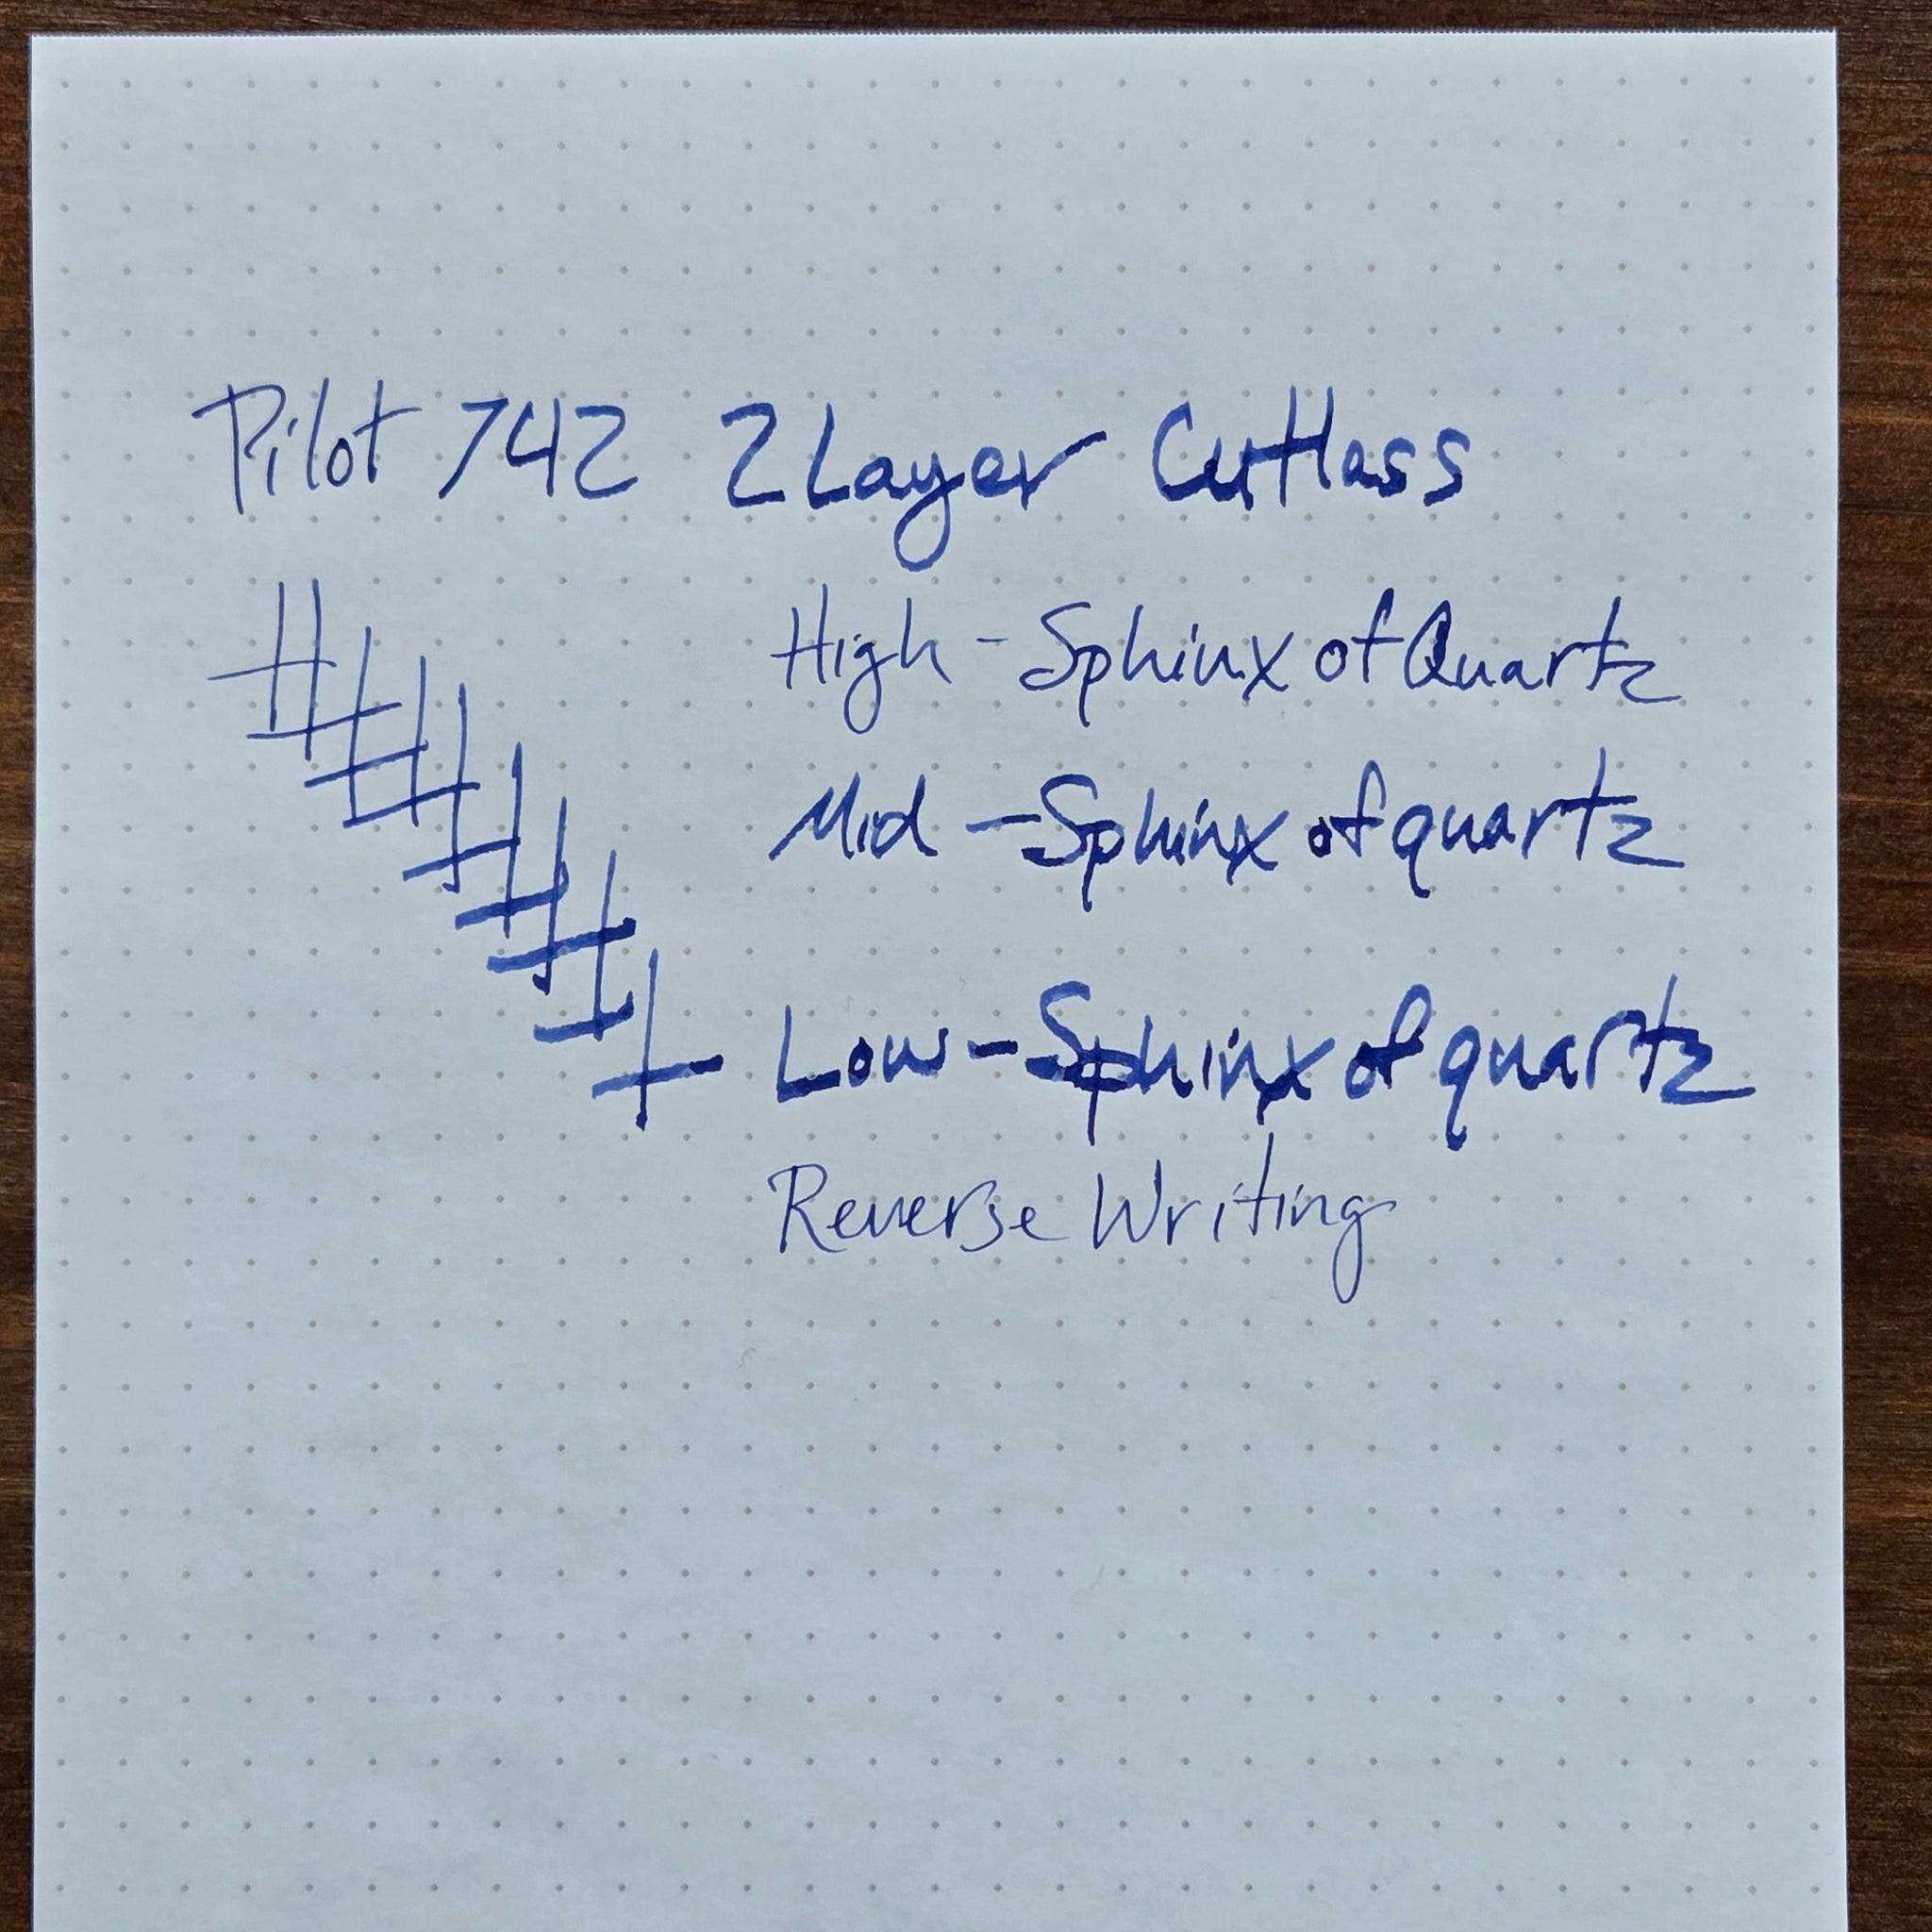 Pilot 742 2 Layer Cutlass
High - Sphinx of Quartz
Mid - Sphinx of quartz
Low - Sphinx of quartz
Reverse Writing